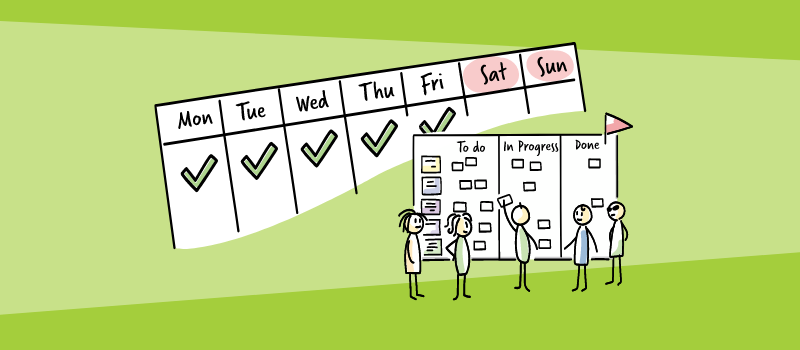 Mon Tue Wed Thu Fri Sat Sun
To do In Progress Done